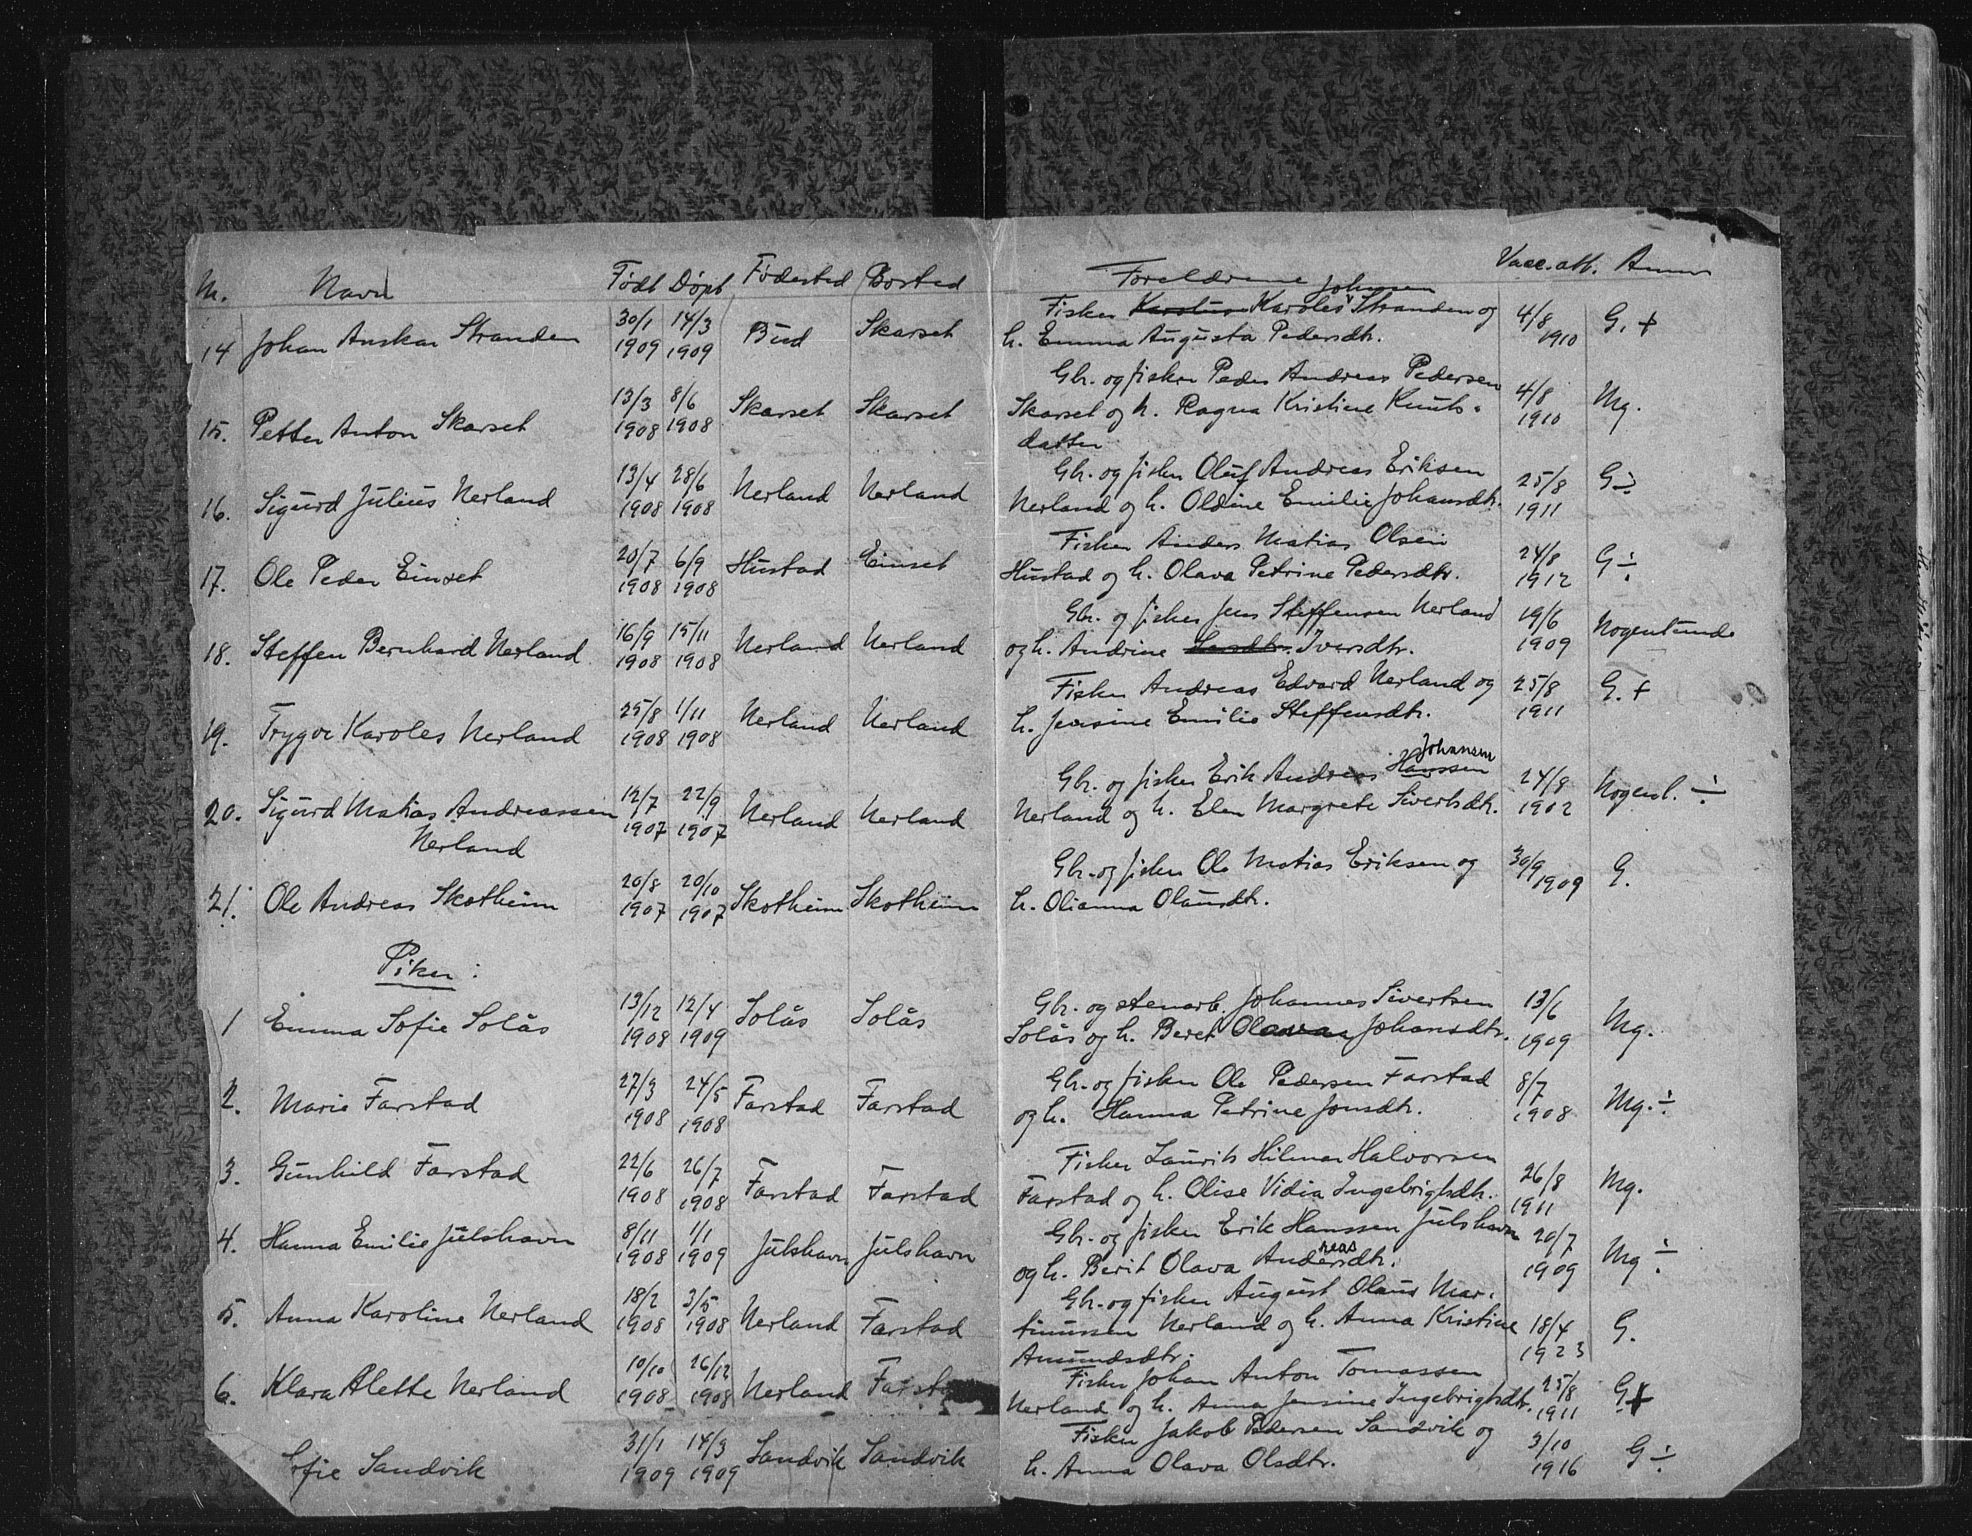 N. Navn Født Døpt Fødested Bosted Foreldrene Vacc. att. Anm
14 Johan Anskar Stranden 30/1 1909 14/3 1909 Bud Skarset Fisker Karoles Johnsen Stranden og 4/8 1910 G. +
h. Emma Augusta Pedersdtr.
15. Petter Anton Skarset 13/3 1908 8/6 1908 Skarset Skarset Gbr. og fisker Peder Andreas Pedersen 4/8 1910 Mg.
Skarset og h. Ragna Kristine Knuts-
datter
16. Sigurd Julius Nerland 13/4 1908 28/6 1908 Nerland Nerland Gbr. og fisker Oluf Andreas Eriksen 25/8 1911 G ÷
Nerland og h. Oldine Emilie Johansdtr.
17. Ole Peder Einset 20/7 1908 6/9 1908 Hustad Einset Fisker Anders Matias Olsen 24/8 1912 G ÷
Hustad og h. Olava Petrine Pedersdtr.
18. Steffen Bernhard Nerland 16/9 1908 15/11 1908 Nerland Nerland Gbr. og fisker Jens Steffensen Nerland 19/6 1909 Nogenlunde
og h. Andrine Iversdtr.
19. Trygve Karoles Nerland 25/8 1908 1/11 1908 Nerland Nerland Fisker Andreas Edvard Nerland og 25/8 1911 G. +
h. Jensine Emilie Steffensdtr.
20. Sigurd Matias Andreassen 12/7 1907 22/9 1907 Nerland Nerland Gbr. og fisker Erik Andreas Hanssen Johansen 24/8 1902 Nogenl. ÷
Nerland Nerland og h. Elen Margrete Sivertsdtr.
21. Ole Andreas Skotheim 20/8 1907 20/10 1907 Skotheim Skotheim Gbr. og fisker Ole Matias Eriksen og 30/9 1909 G.
h. Olianna Olausdtr.
Piker:
1 Emma Sofie Solås 13/12 1908 12/4 1909 Solås Solås Gbr. og stenarb. Johannes Sivertsen 13/6 1909 Mg.
Solås og h. Beret Olava Johansdtr.
2. Marie Farstad 27/3 1908 24/5 1908 Farstad Farstad Gbr. og fisker Ole Pedersen Farstad 8/7 1908 Mg. ÷
og h. Hanna Petrine Jonsdtr.
3. Gunhild Farstad 22/6 1908 26/7 1908 Farstad Farstad Fisker Laurits Hilmar Halvorsen 26/8 1911 Mg.
Farstad og h. Olise Vidia Ingebrigtsdtr.
4. Hanna Emilie Julshavn 8/11 1908 1/1 1909 Julshavn Julshavn Gbr. og fisker Erik Hanssen Julshavn 20/7 1909 Mg ÷
og h. Berit Olava Andersdtr. reas
5. Anna Karoline Nerland 18/2 1908 3/5 1908 Nerland Farstad Gbr. og fisker August Olaus Mar-
tinussen Nerland og h. Anna Kristine 18/4 1923 G.
Amundsdtr.
6. Klara Alette Nerland 10/10 1908 26/12 1908 Nerland Farsta Fisker Johan Anton Tomassen 25/8 1911 G. +
Nerland og h. Anna Jensine Ingebrigtsdtr.
Sofie Sandvik 31/1 1909 14/3 1909 Sandvik Sandvik Fisker Jakob Pedersen Sandvik og 3/10 1916 G ÷
h. Anna Olava Olsdtr.